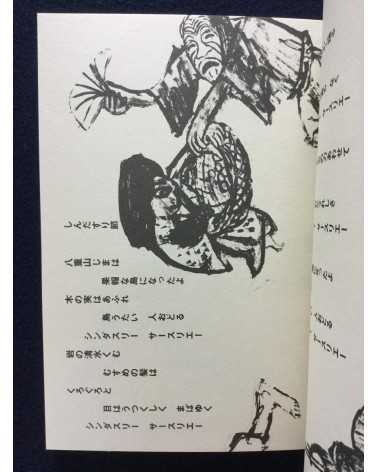 しんだすり節
八重山じまは
果報な島になったよ
木の実はあふれ
島うたい　人おどる
シンダスリー　サースリエー
岩の清水くむ
むすめの髪は
くろぐろと
目はうつくしく　まばゆく
シンダスリー　サースリエー
ースリエー
あわせて
ースリエー
ったよ
おどる
ースリエー